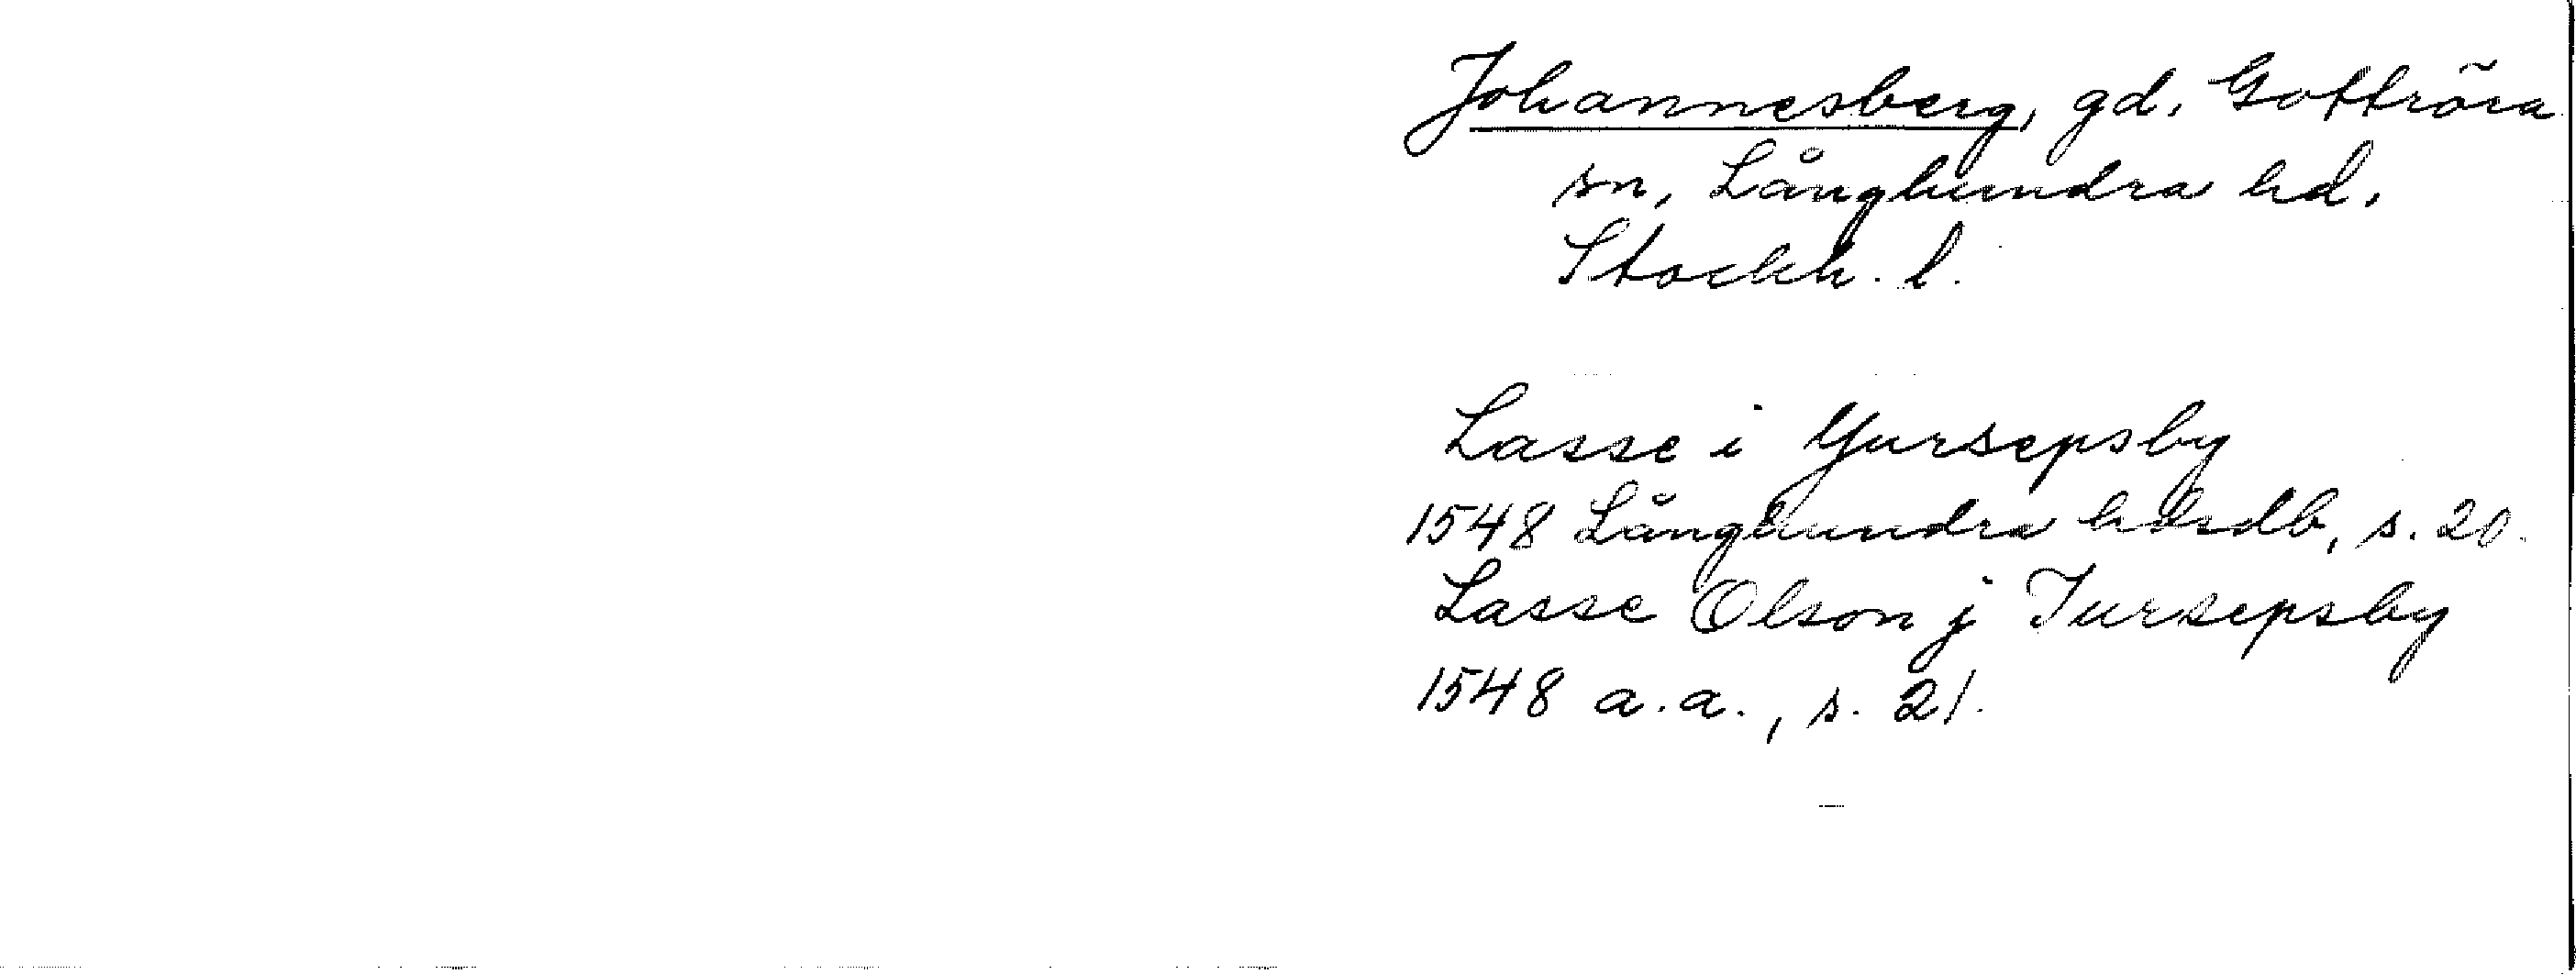 Johannesberg, gd, Gottröra
sn, Långhundra hd,
Stockh. l.
Lasse i Yursepsby
1548 Långhundra hdsdb, s. 20.
Lasse Olson j Jursepsby
1548 a.a., s. 21.